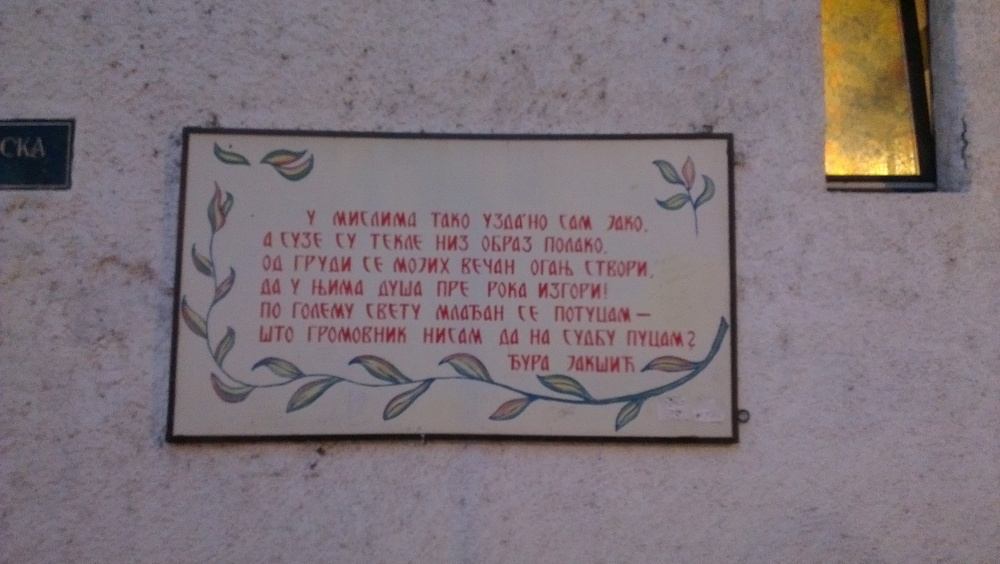 СКА
У МИСЛИМА ТАКО УЗДА'НО САМ ЈАКО,
А СУЗЕ СУ ТЕКЛЕ НИЗ ОБРАЗ ПОЛАКО,
ОД ГРУДИ СЕ МОЈИХ ВЕЧАН ОГАЊ СТВОРИ,
ДА У ЊИМА ДУША ПРЕ РОКА ИЗГОРИ!
ПО ГОЛЕМУ СВЕТУ МЛАЂАН СЕ ПОТУЦАМ —
ШТО ГРОМОВНИК НИСАМ ДА НА СУДБУ ПУЦАМ?
ЂУРА ЈАКШИЋ